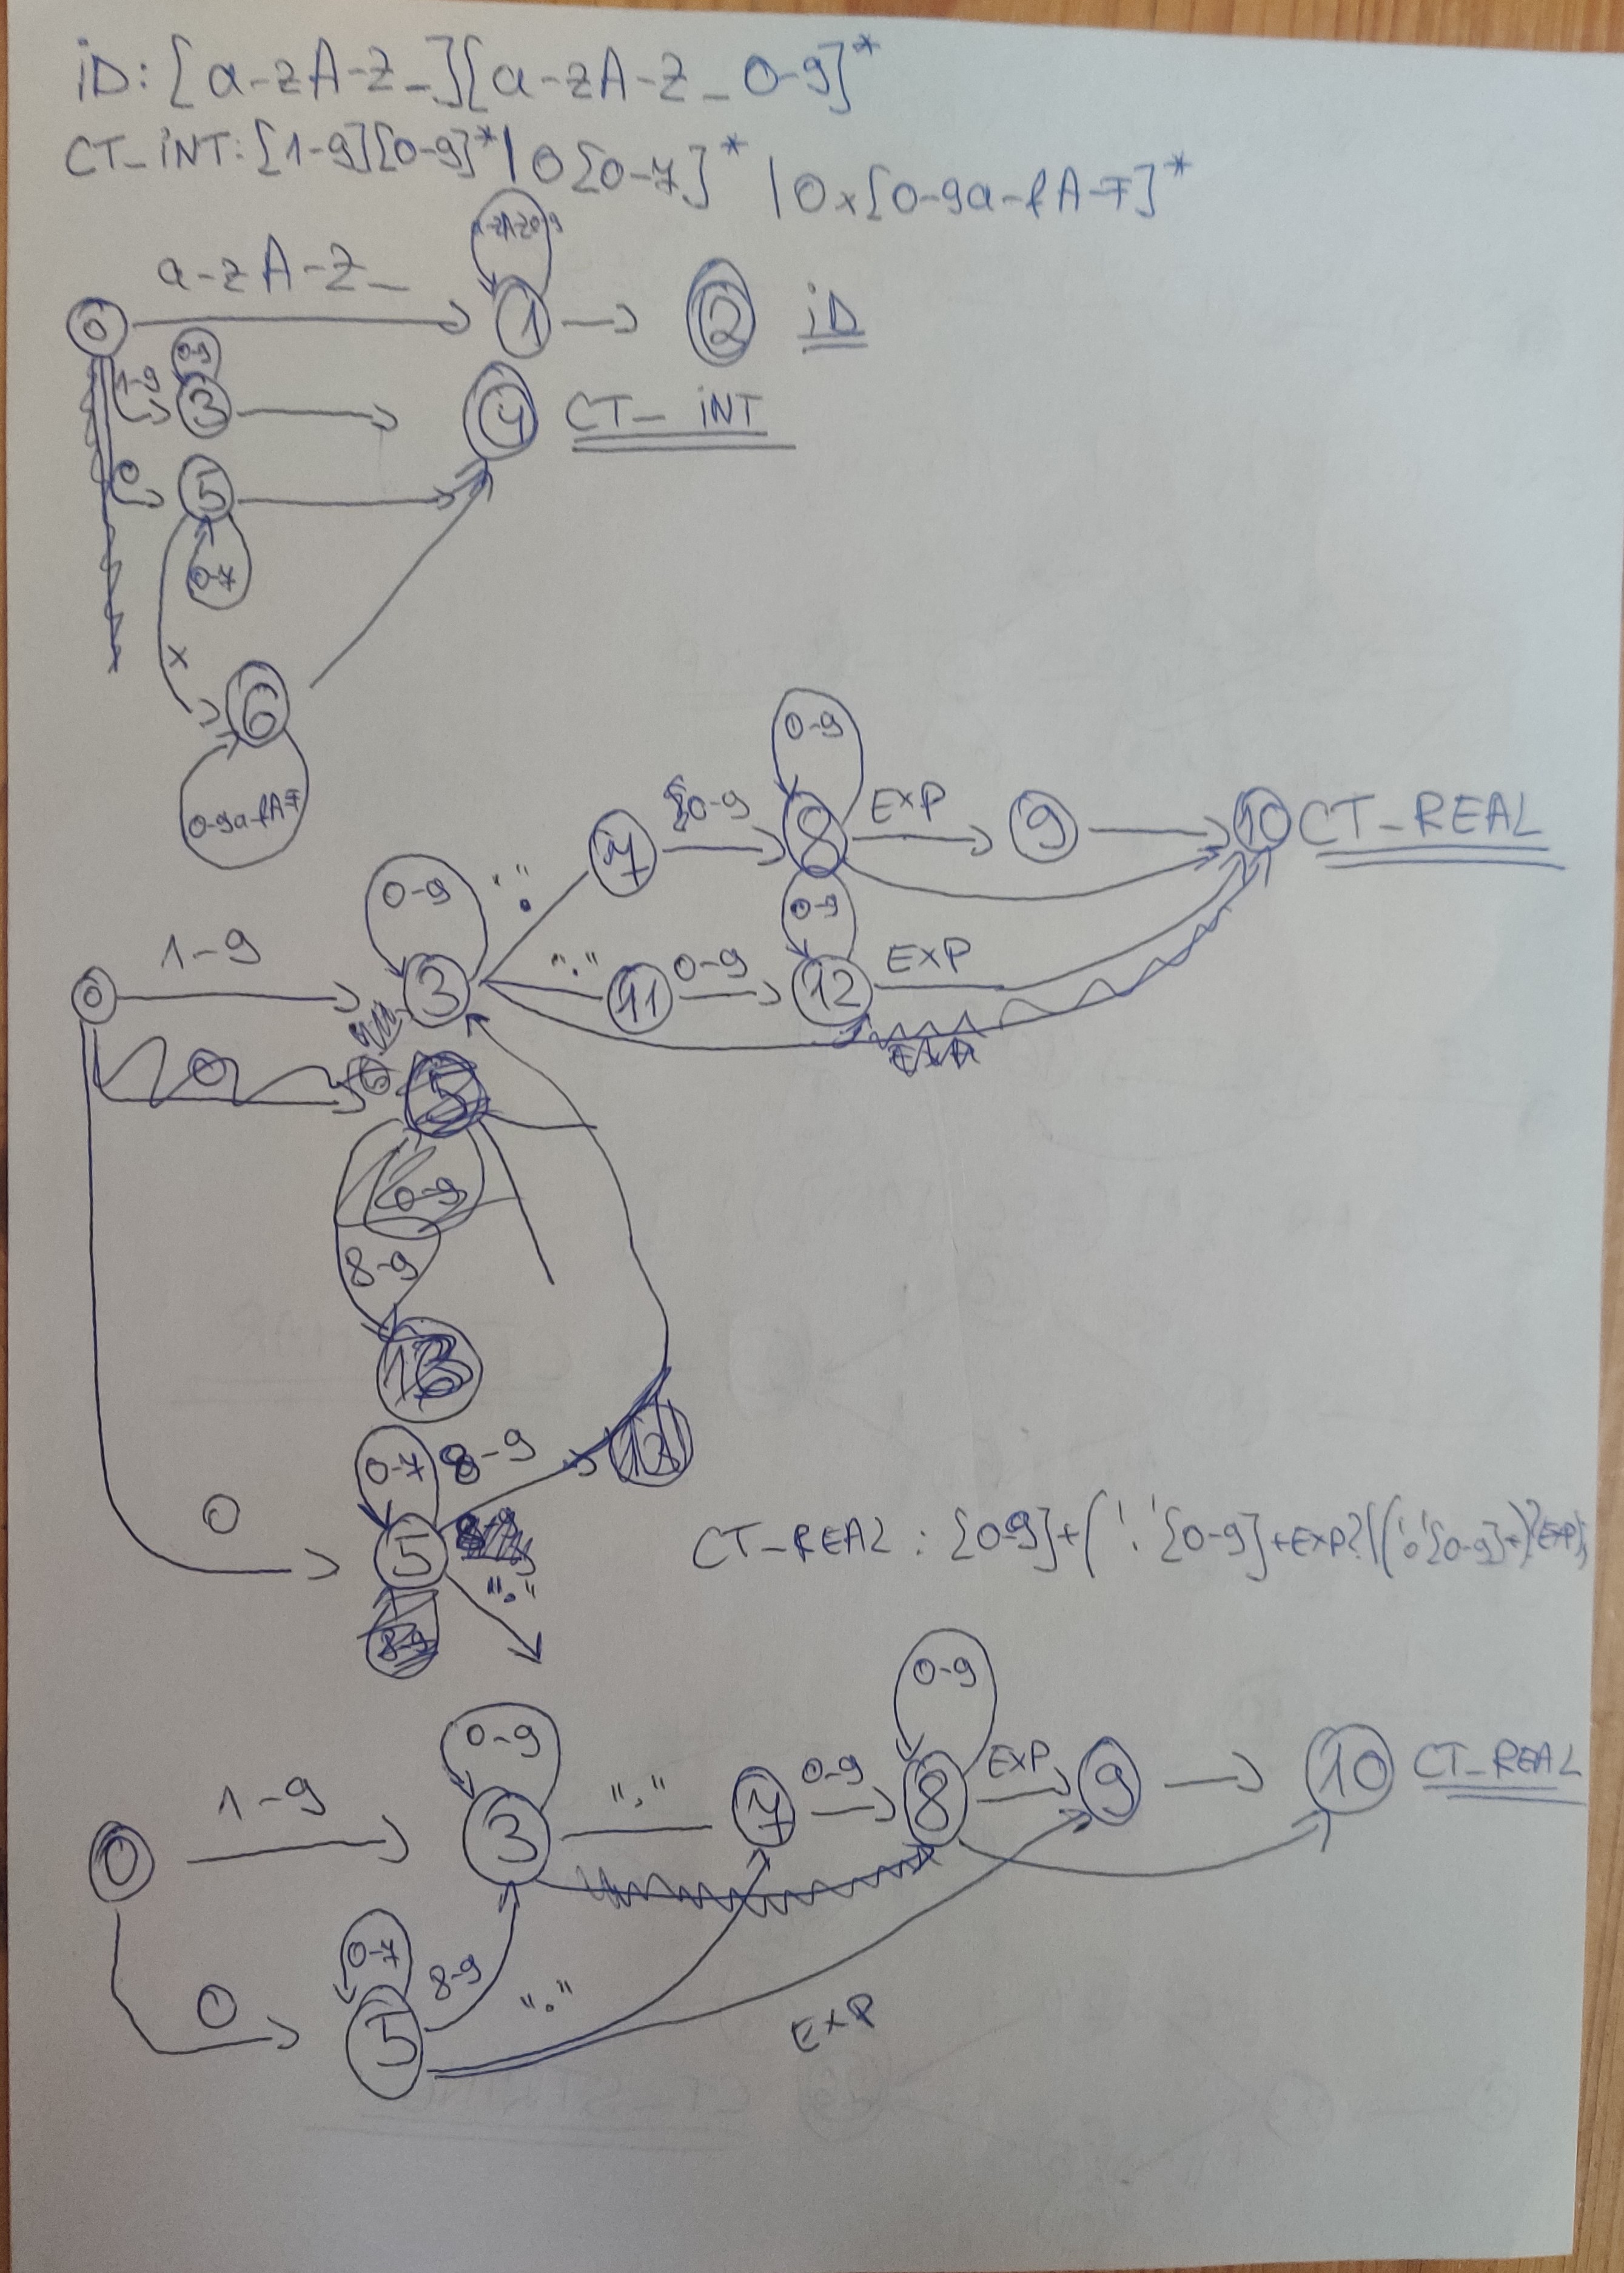 iD: [a-zA-Z_][a-zA-Z_0-9]*
CT_iNT: [1-9][0-9]*|0[0-7]*|0x[0-9a-fA-F]*
a-zA-Z_
0
1
2
iD
1-9
0-9
3
4
CT_iNT
0
5
0-7
x
6
0-9a-fA-F
0-9
7
0-9
8
EXP
9
10
CT_REAL
0-9
"."
0-9
1-9
0
3
"."
11
0-9
12
EXP
0
5
0-9
8-9
0-7
8-9
0
5
"."
CT_REAL : [0-9]+('.'[0-9]+EXP?|('.'[0-9]+)?EXP)
8-9
0-9
0-9
1-9
0
3
"."
7
0-9
8
EXP
9
10
CT_REAL
0-7
8-9
"."
0
5
EXP